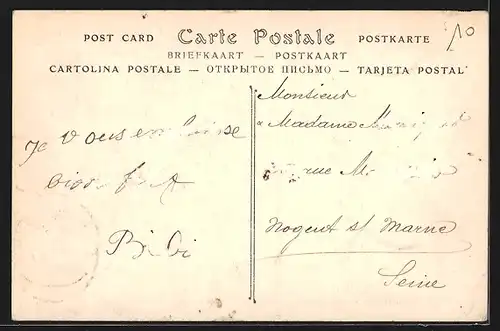 POST CARD Carte Postale POSTKARTE
BRIEFKAART — POSTKAART
CARTOLINA POSTALE — ОТКРЫТОЕ ПИСЬМО — TARJETA POSTAL
10
Je vous
Bibi
Monsieur
Madame
rue
Nogent st Marne
Seine